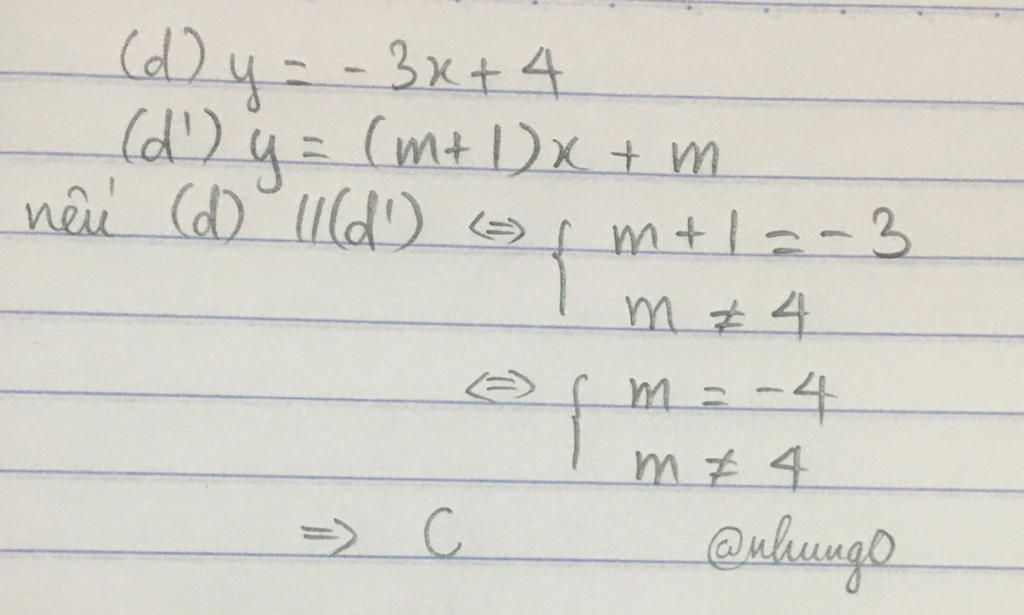 (d) y = -3x + 4
(d') y = (m+1)x + m
nếu (d) //(d') <=> { m + 1 = -3
m ≠ 4
<=> { m = -4
m ≠ 4
=> C @nhung0